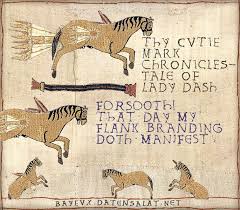 Thy CVTIE
MARK
CHRONICLES-
TALE OF
LADY DASH
FORSOOTH!
THAT DAY MY
FLANK BRANDING
DOTH MANIFEST
BAYEVX.DATENSALAT.NET